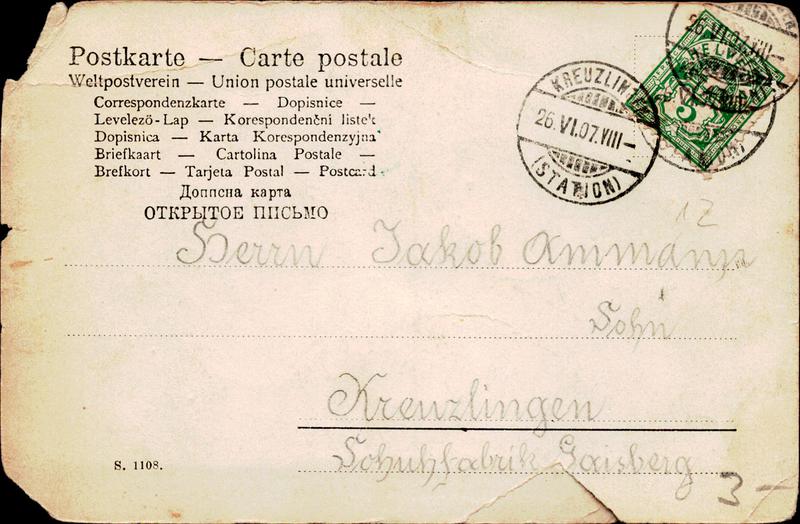 Postkarte — Carte postale
Weltpostverein — Union postale universelle
Correspondenzkarte — Dopisnice —
Levelező-Lap — Korespondenční listek
Dopisnica — Karta Korespondenzyjna
Briefkaart — Cartolina Postale —
Brefkort — Tarjeta Postal — Postcard
Дописна карта
ОТКРЫТОЕ ПИСЬМО
KREUZLIN
26.VI.07.VIII—
(STATION)
HELV
5
12
Herrn Jakob Ammann
Sohn
Kreuzlingen
Schuhfabrik Gaisberg
S. 1108.
3 —